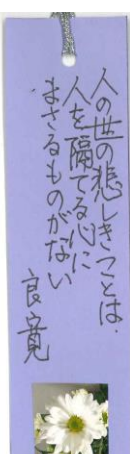 人の世の悲しきことは.
人を隔てる心に
まさるものがない
良寛